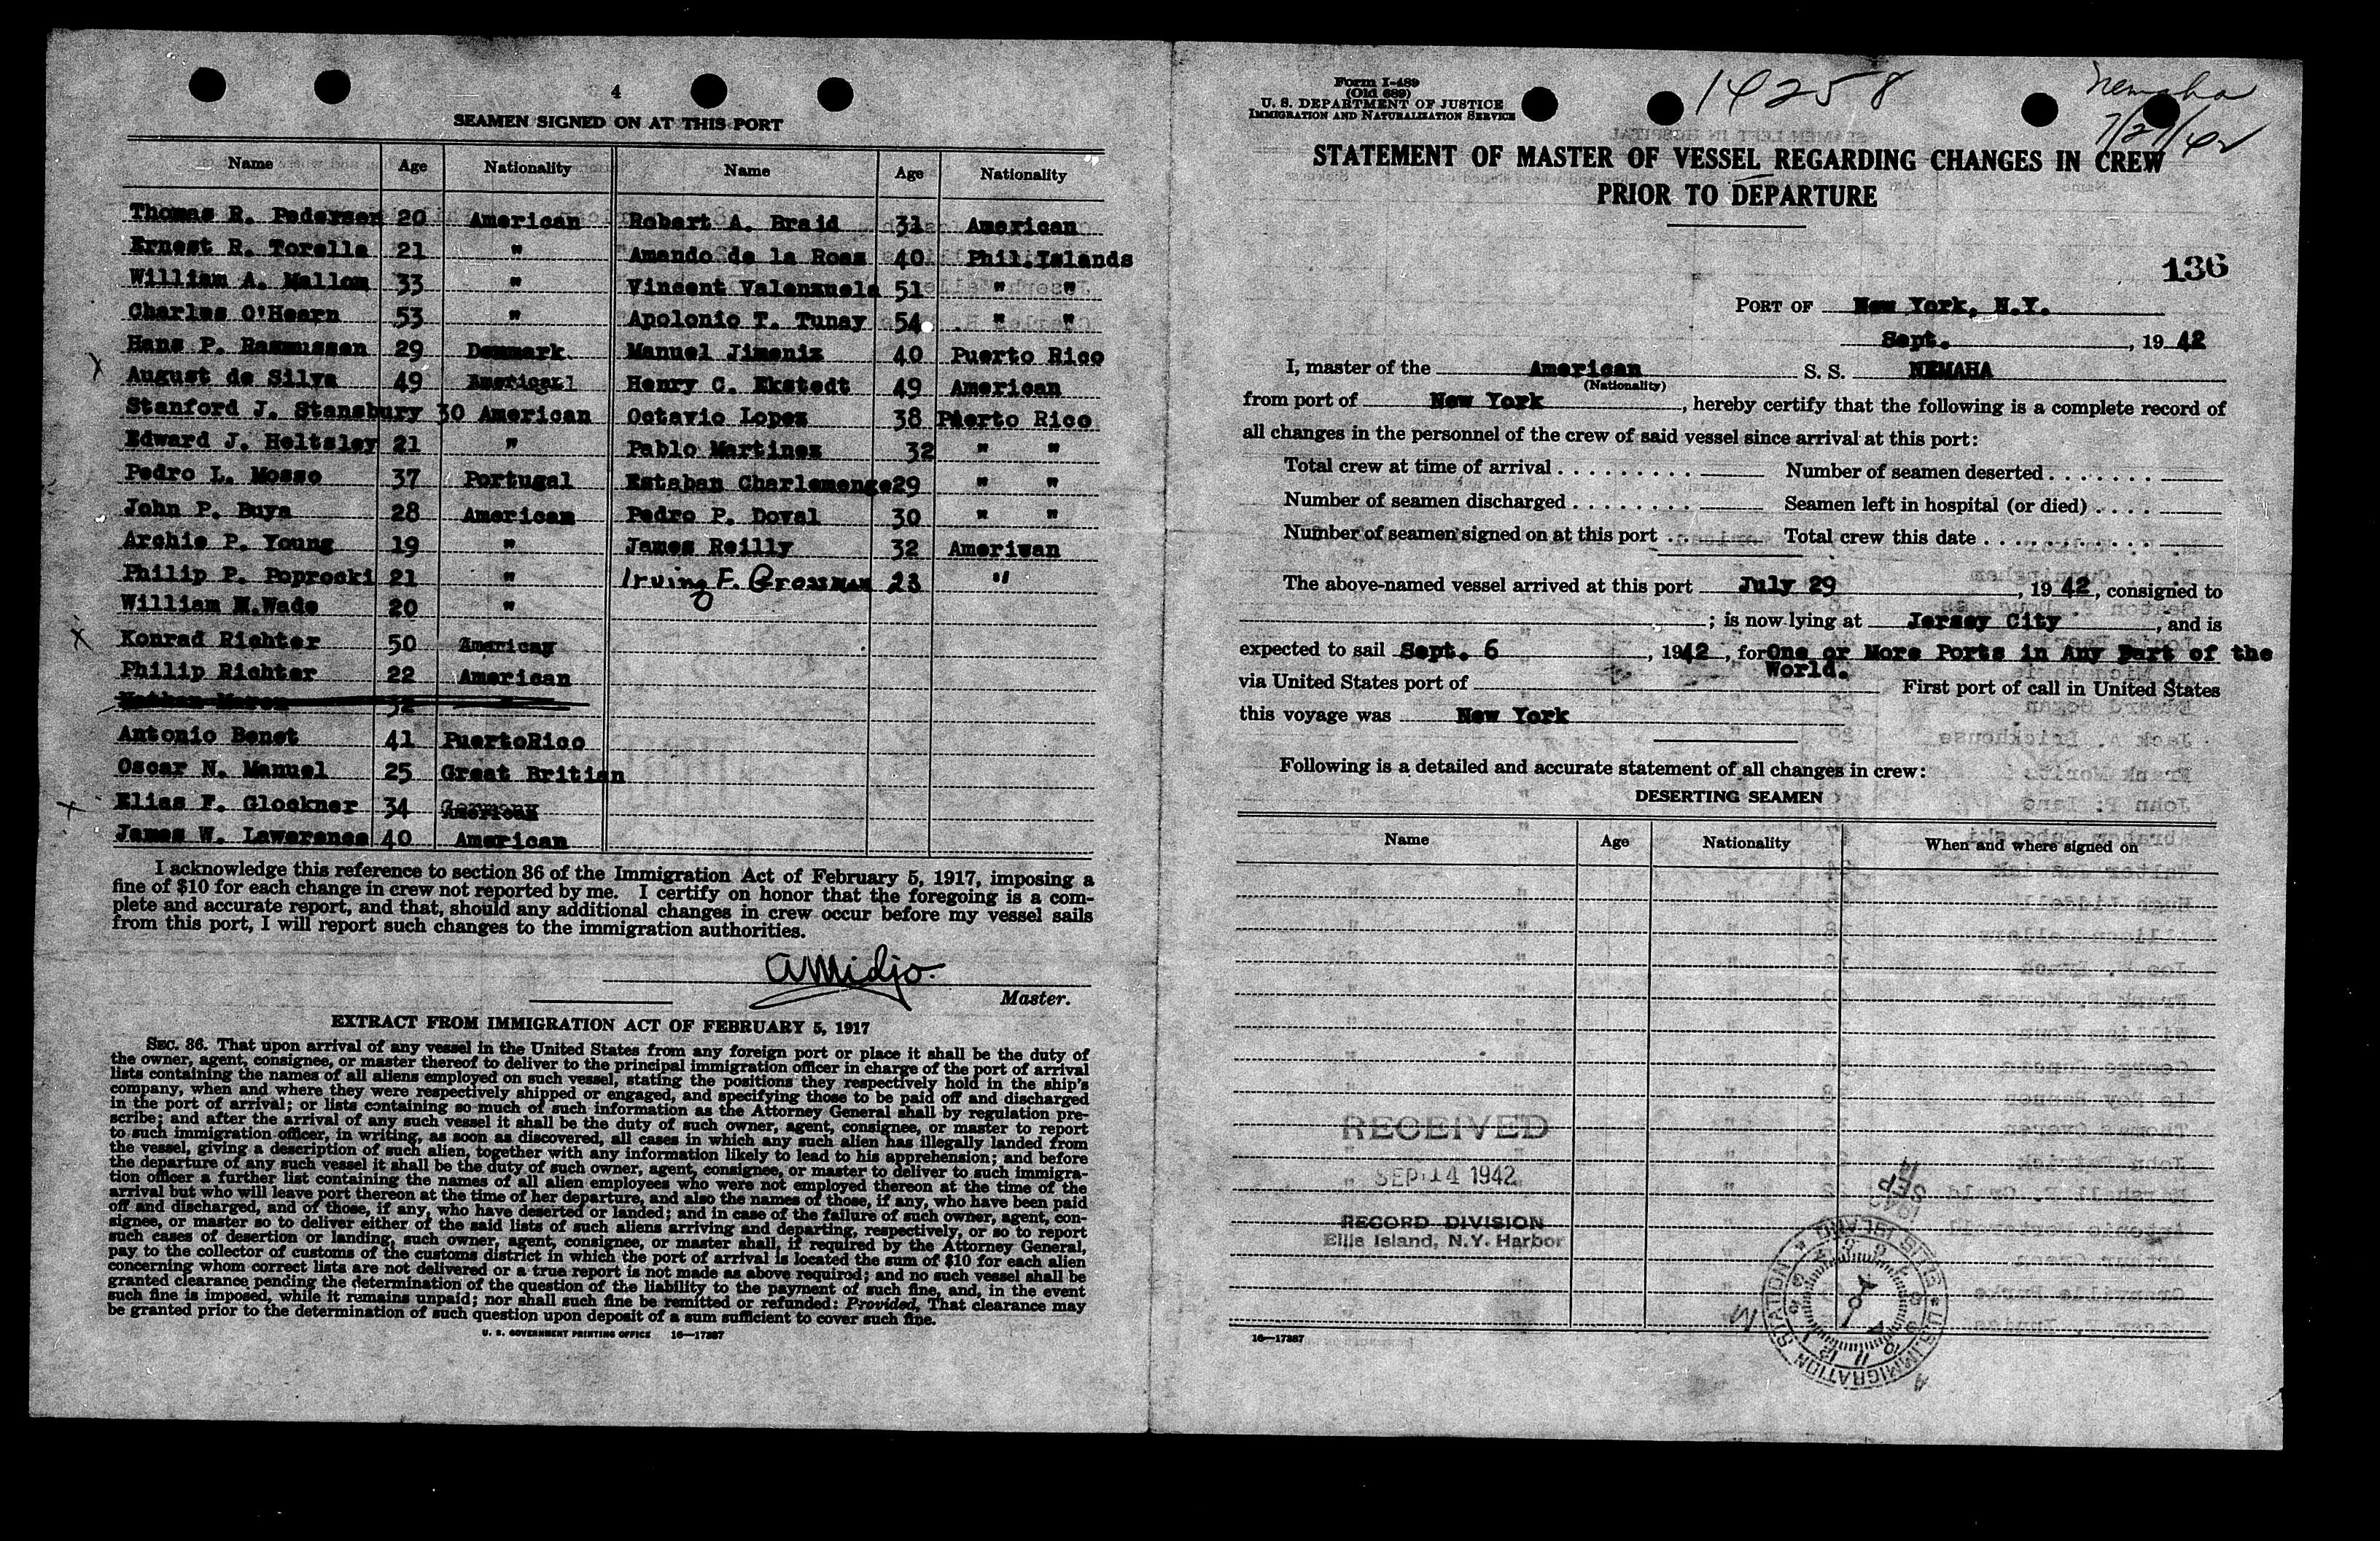 4
SEAMEN SIGNED ON AT THIS PORT
Name Age Nationality Name Age Nationality
Thomas R. Pedersen 20 American Robert A. Braid 31 American
Ernest R. Torelle 21 " Amando de la Rosa 40 Phil.Islands
William A. Mallom 33 " Vincent Valenzuela 51 " "
Charles O'Hearn 53 " Apolonio T. Tunay 54 " "
Hans P. Rasmussen 29 Denmark Manuel Jimeniz 40 Puerto Rico
X August de Silva 49 Henry C. Ekstedt 49 American
Stanford J. Stansbury 30 American Octavio Lopez 38 Puerto Rico
Edward J. Heltsley 21 " Pablo Martinez 32 " "
Pedro L. Mosso 37 Portugal Estaban Charlemenge 29 " "
John P. Buya 28 American Pedro P. Doval 30 " "
Archie P. Young 19 " James Reilly 32 American
Philip P. Poprocki 21 " Irving F. Grossman 23 "
William M.Wade 20 "
X Konrad Richter 50 American
Philip Richter 22 American
Antonio Benet 41 PuertoRico
Oscar N. Manuel 25 Great Britian
X Elias F. Glockner 34
James W. Lawerence 40 American
I acknowledge this reference to section 36 of the Immigration Act of February 5, 1917, imposing a
fine of $10 for each change in crew not reported by me. I certify on honor that the foregoing is a com-
plete and accurate report, and that, should any additional changes in crew occur before my vessel sails
from this port, I will report such changes to the immigration authorities.
AMidjo.
Master.
EXTRACT FROM IMMIGRATION ACT OF FEBRUARY 5, 1917
SEC. 36. That upon arrival of any vessel in the United States from any foreign port or place it shall be the duty of
the owner, agent, consignee, or master thereof to deliver to the principal immigration officer in charge of the port of arrival
lists containing the names of all aliens employed on such vessel, stating the positions they respectively hold in the ship's
company, when and where they were respectively shipped or engaged, and specifying those to be paid off and discharged
in the port of arrival; or lists containing so much of such information as the Attorney General shall by regulation pre-
scribe; and after the arrival of any such vessel it shall be the duty of such owner, agent, consignee, or master to report
to such immigration officer, in writing, as soon as discovered, all cases in which any such alien has illegally landed from
the vessel, giving a description of such alien, together with any information likely to lead to his apprehension; and before
the departure of any such vessel it shall be the duty of such owner, agent, consignee, or master to deliver to such immigra-
tion officer a further list containing the names of all alien employees who were not employed thereon at the time of the
arrival but who will leave port thereon at the time of her departure, and also the names of those, if any, who have been paid
off and discharged, and of those, if any, who have deserted or landed; and in case of the failure of such owner, agent, con-
signee, or master so to deliver either of the said lists of such aliens arriving and departing, respectively, or so to report
such cases of desertion or landing, such owner, agent, consignee, or master shall, if required by the Attorney General,
pay to the collector of customs of the customs district in which the port of arrival is located the sum of $10 for each alien
concerning whom correct lists are not delivered or a true report is not made as above required; and no such vessel shall be
granted clearance pending the determination of the question of the liability to the payment of such fine, and, in the event
such fine is imposed, while it remains unpaid; nor shall such fine be remitted or refunded: Provided, That clearance may
be granted prior to the determination of such question upon deposit of a sum sufficient to cover such fine.
U. S. GOVERNMENT PRINTING OFFICE 16—17387
Form I-489
(Old 689)
U. S. DEPARTMENT OF JUSTICE
IMMIGRATION AND NATURALIZATION SERVICE
14258
Nemaha
7/29/42
STATEMENT OF MASTER OF VESSEL REGARDING CHANGES IN CREW
PRIOR TO DEPARTURE
136
PORT OF New York, N.Y.
Sept. , 19 42
I, master of the American S. S. NEMAHA
(Nationality)
from port of New York , hereby certify that the following is a complete record of
all changes in the personnel of the crew of said vessel since arrival at this port:
Total crew at time of arrival . . . . . . . . . Number of seamen deserted . . . . . . .
Number of seamen discharged . . . . . . . . Seamen left in hospital (or died) . . . .
Number of seamen signed on at this port . . Total crew this date . . . . . . . . . . .
The above-named vessel arrived at this port July 29 , 19 42 , consigned to
; is now lying at Jersey City , and is
expected to sail Sept. 6 , 1942 , for One or More Ports in Any Part of the
World.
via United States port of First port of call in United States
this voyage was New York
Following is a detailed and accurate statement of all changes in crew:
DESERTING SEAMEN
Name Age Nationality When and where signed on
RECEIVED
SEP 14 1942
RECORD DIVISION
Ellis Island, N.Y. Harbor
1942
SEP 14
U.S. IMMIGRATION STATION * ELLIS ISLAND *
16—17387